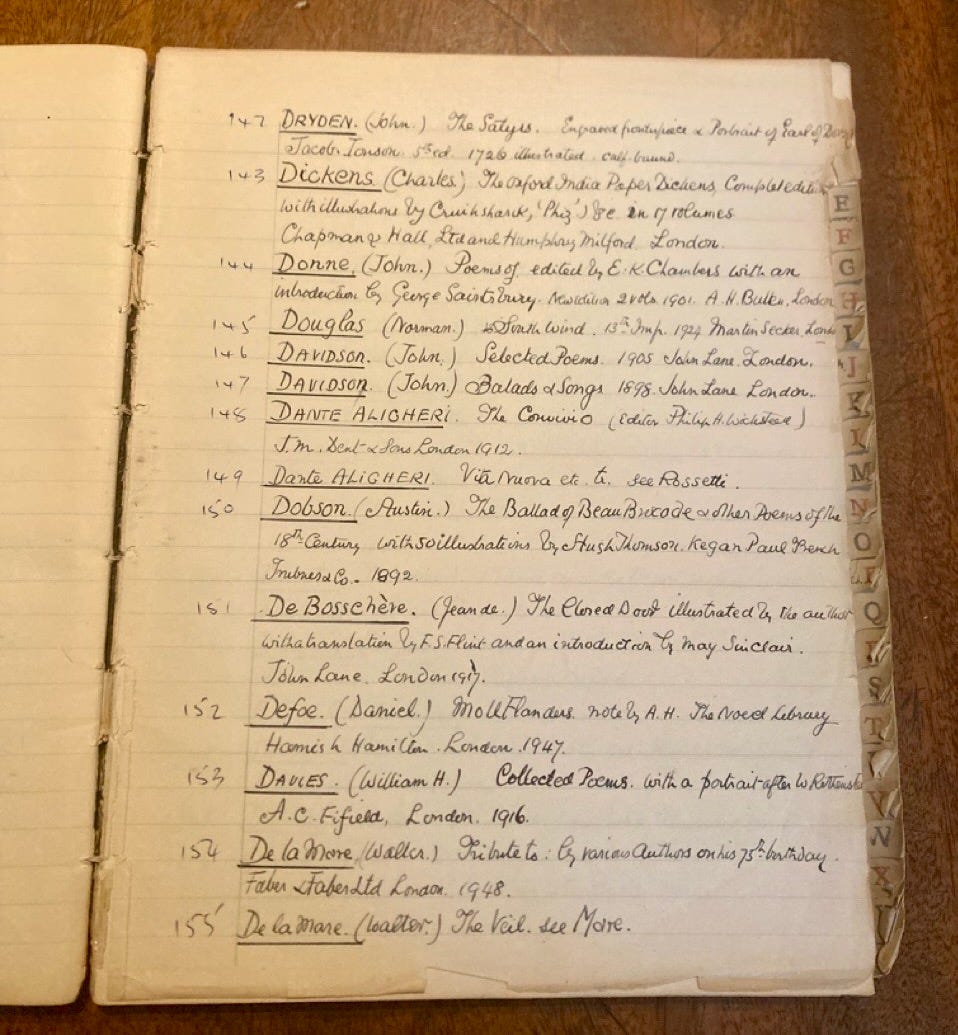 142 DRYDEN. (John.) The Satyrs. Engraved frontispiece & Portrait of Earl of
Jacob Tonson. 5th ed. 1726 illustrated. calf bound.
143 Dickens (Charles.) The Oxford India Paper Dickens, Complete
with illustrations by Cruikshank, 'Phiz') &c. in 17 volumes
Chapman & Hall, Ltd and Humphrey Milford. London.
144 Donne, (John.) Poems of, edited by E.K. Chambers with an
introduction by George Saintsbury. New edition 2 vols. 1901. A.H. Bullen, London
145 Douglas (Norman.) South Wind. 13th Imp. 1924 Martin Secker,
146 DAVIDSON. (John.) Selected Poems. 1905 John Lane. London.
147 DAVIDSON. (John.) Balads & Songs 1898. John Lane London.
148 DANTE ALIGHERI. The Convivio (Editor Philip H. Wicksteed)
J.M. Dent & Sons London 1912.
149 Dante ALIGHERI. Vita Nuova etc. tr. see Rossetti.
150 Dobson. (Austin.) The Ballad of Beau Brocade & other Poems of the
18th Century with 50 illustrations by Hugh Thomson. Kegan Paul Trench
Trubner & Co. 1892.
151 De Bosschère. (Jean de.) The Closed Door illustrated by the author
with a translation by F.S. Flint and an introduction by May Sinclair.
John Lane. London 1917.
152 Defoe. (Daniel.) Moll Flanders. note by A.H. The Novel Library
Hamish Hamilton. London. 1947.
153 DAVIES. (William H.) Collected Poems. with a portrait after W
A.C. Fifield, London. 1916.
154 De la More (Walter.) Tribute to: by various Authors on his 75th birthday.
Faber & Faber Ltd London. 1948.
155 De la Mare. (Walter.) The Veil. see More.
E
F
G
H
I
J
K
L
M
N
O
P
Q
R
S
T
V
W
X